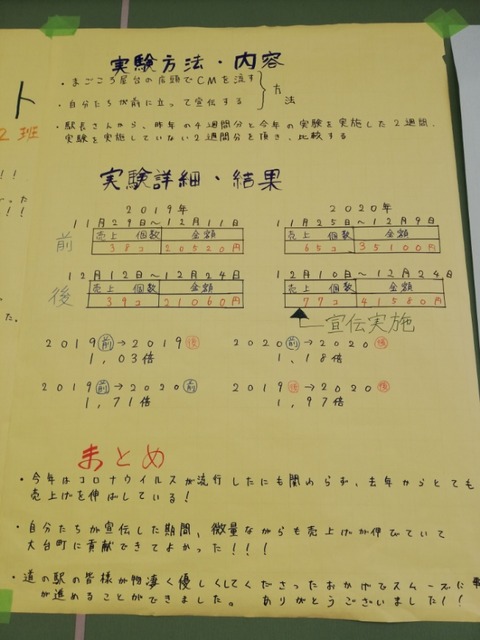 ト
2班
!!
!!
た。
実験方法・内容
・まごころ屋台の店頭でCMを流す
・自分たちが前に立って宣伝する
方法
・駅長さんから、昨年の4週間分と今年の実験を実施した2週間、
実験を実施していない2週間分を頂き、比較する
実験詳細・結果
2019年 2020年
前 11月29日〜12月11日 11月25日〜12月9日
売上 個数 金額 売上 個数 金額
38コ 20520円 65コ 35100円
後 12月12日〜12月24日 12月10日〜12月24日
売上 個数 金額 売上 個数 金額
39コ 21060円 77コ 41580円
宣伝実施
2019前→2019後 2020前→2020後
1,03倍 1,18倍
2019前→2020前 2019後→2020後
1,71倍 1,97倍
まとめ
・今年はコロナウイルスが流行したにも関わらず、去年からとても
売上げを伸ばしている!
・自分たちが宣伝した期間、微量ながらも売上げが伸びていて
大台町に貢献できてよかった!!!
・道の駅の皆様が物凄く優しくしてくださったおかげでスムーズに
が進めることができました。ありがとうございました!!